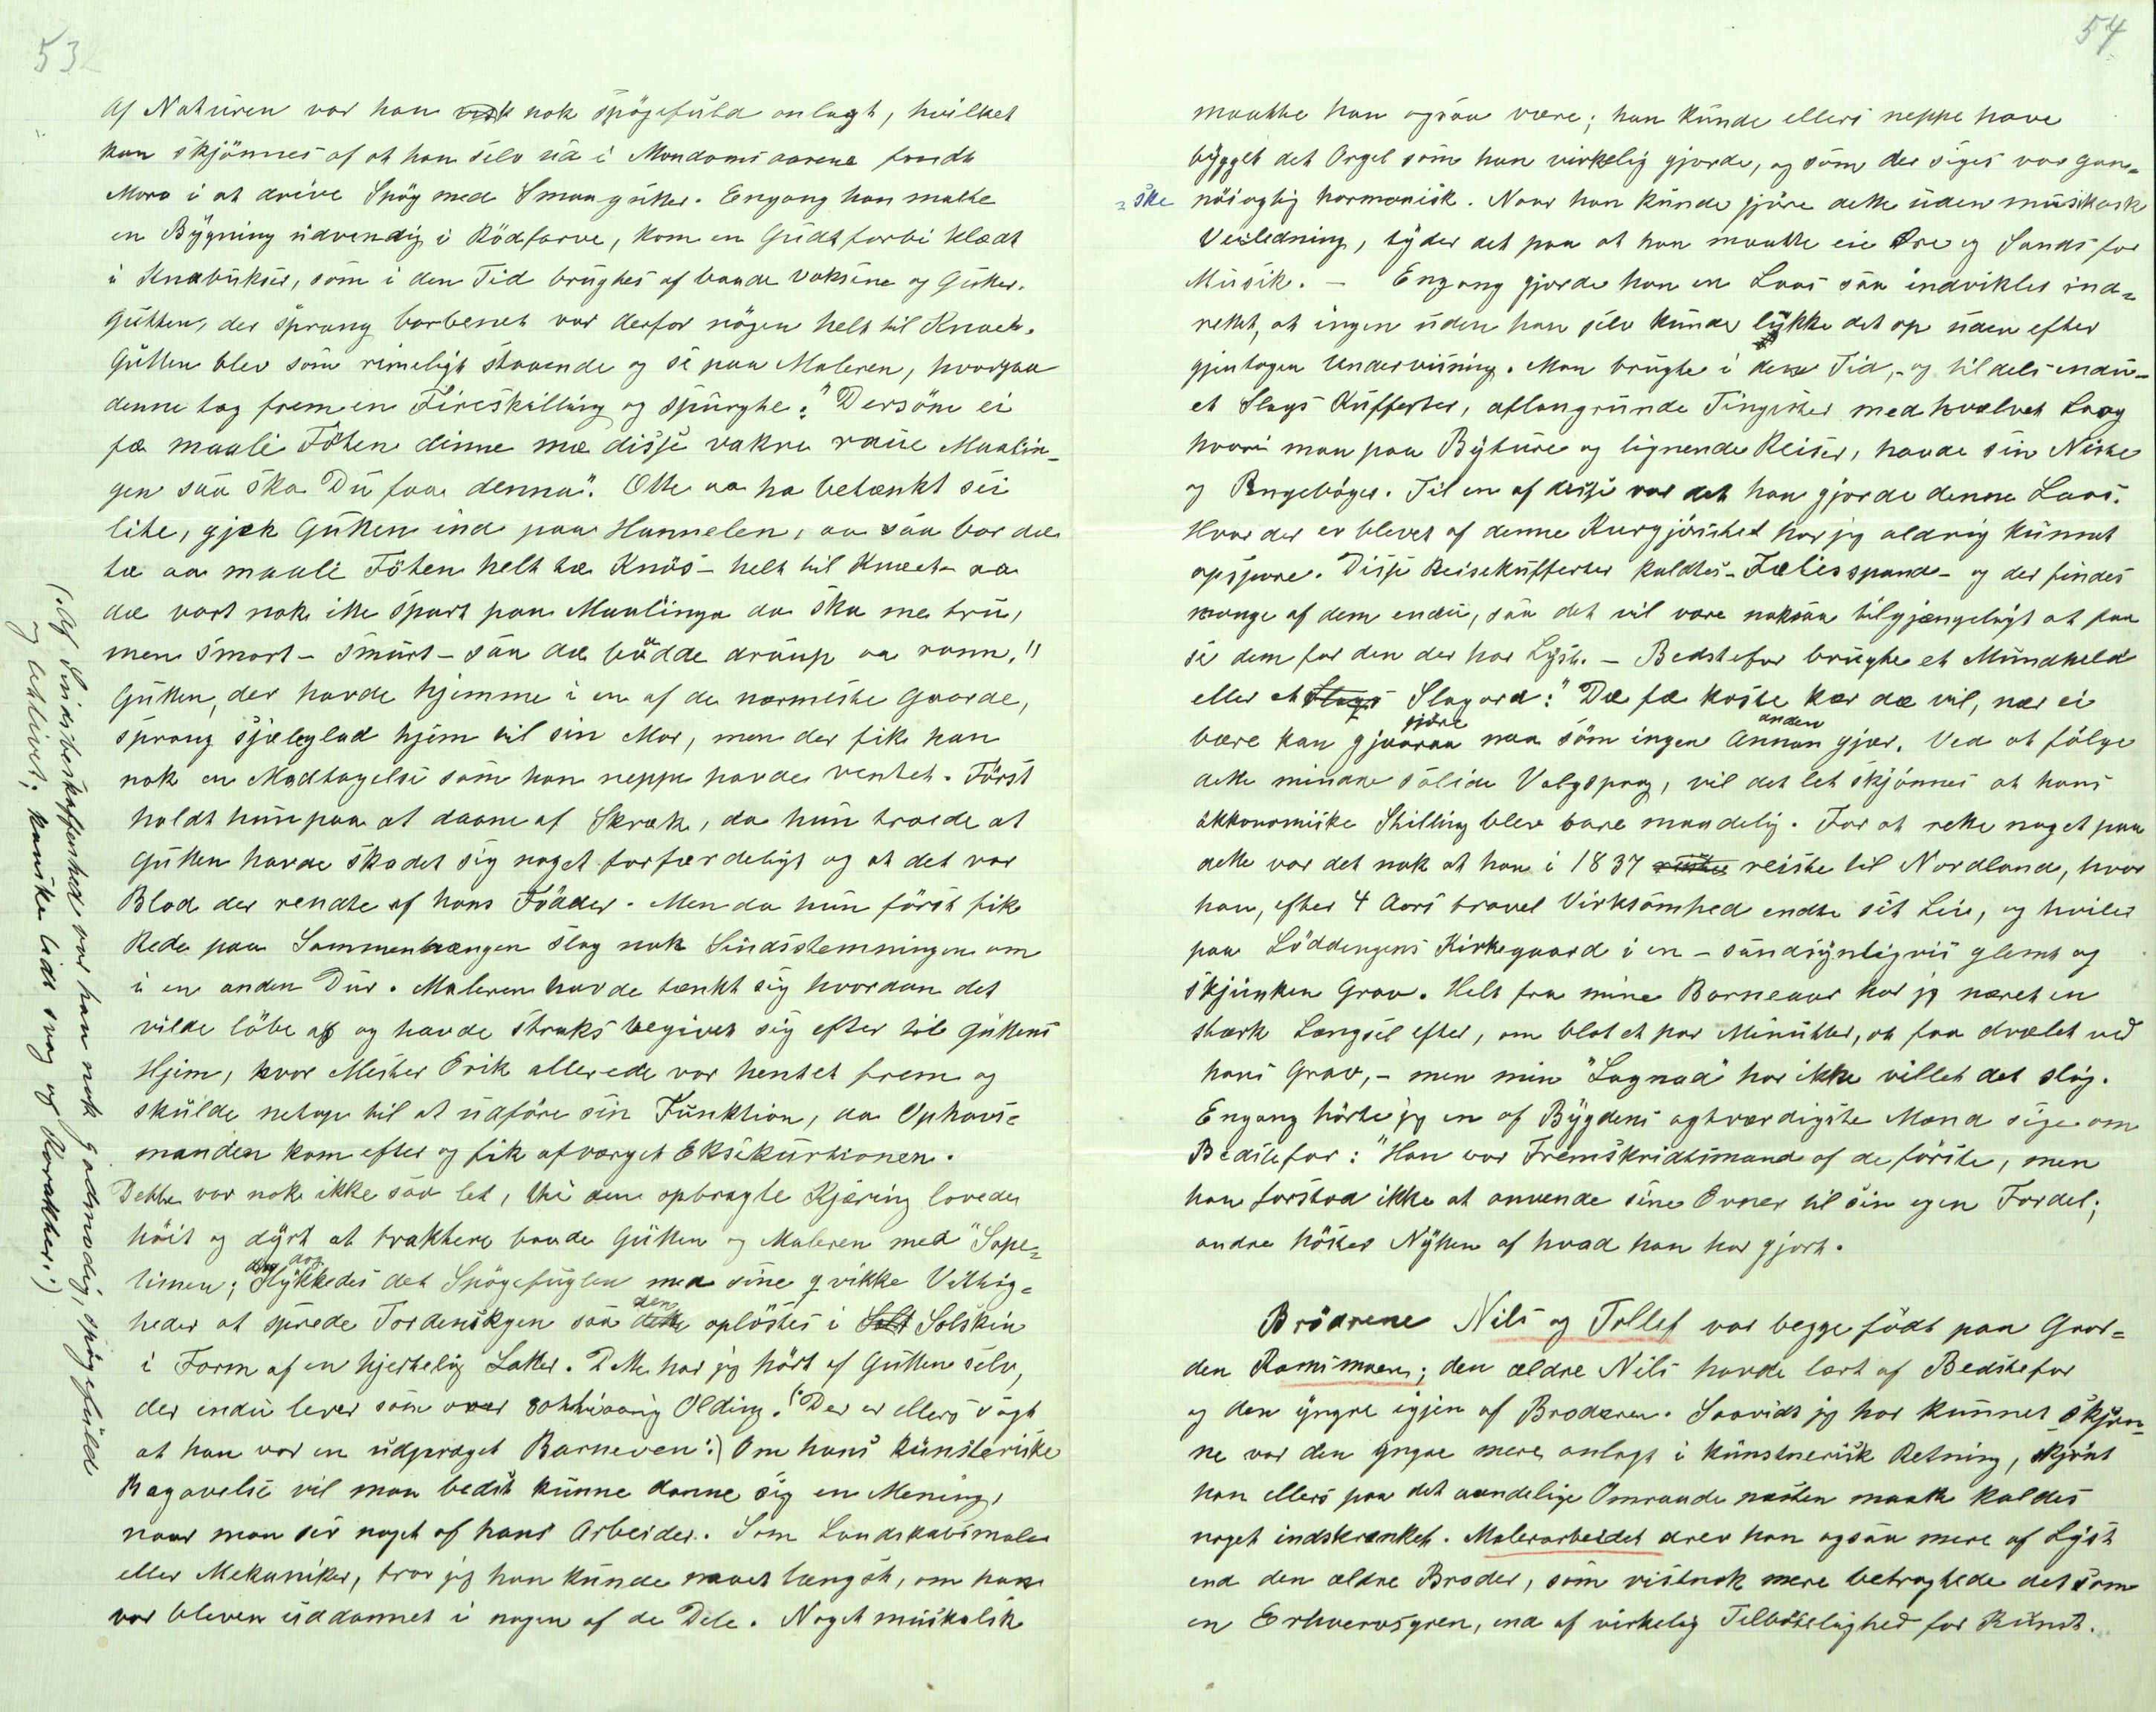 53
Af Naturen var han nok spögefuld anlagt, hvilket
kan skjönnes af at han selv ud i Mandomsaarene fandt
Moro i at drive Spög med Smaagutter. Engang han malte
en Bygning udvendig i Rödfarve, kom en Gudt forbi klædt
i Knæbukser, som i den Tid brugtes af baade voksene og Gutter.
Gutten, der sprang barbenet var derfor nögen helt til Knæet.
Gutten blev som rimeligt staaende og se paa Maleren, hvorpaa
denne tog frem en Fireskilling og spurgte: "Dersöm ei
fæ maali Föten dinne mæ disse vakre raue Maalin-
gen saa ska Du faa denna". Ette aa ha betænkt sei
lite, gjek Gutten ind paa Hannelen, aa saa bar dæ
tæ aa maali Föten helt tæ Knös - helt til Knæet - aa
dæ vart nok itte spart paa Maalinga da ska me tru,
men smort - smurt - saa dæ bådde draup aa rann."
Gutten, der havde hjemme i en af de nærmeste Gaarde,
sprang sjæleglad hjem til sin Mor, men der fik han
nok en Modtagelse som han neppe havde ventet. Först
holdt hun paa at daane af Skræk, da hun troede at
Gutten havde skadet sig noget forfærdeligt og at det var
Blod der rendte af hans Födder. Men da hun först fik
Rede paa Sammenhængen slog nok Sindsstemningen om
i en anden Dur. Maleren havde tænkt sig hvordan det
vilde löbe af og havde straks begivet sig efter til Guttens
Hjem, hvor Mester Erik allerede var hentet frem og
skulde netop til at udföre sin Funktion, da Ophavs=
manden kom efter og fik afværget Eksekurtionen.
Dette var nok ikke saa let, thi den opbragte Kjæring lovede
höit og dyrt at traktere baade Gutten og Maleren med "Sope=
limen; dog lykkedes det Spögefuglen med sine qvikke Vittig=
heder at sprede Tordenskyen saa den oplöstes i Solskin
i Form af en hjertelig Latter. Dette har jeg hört af Gutten selv,
der endu lever som over 80ttiaarig Olding. (: Der er ellers sagt
at han var en udpræget Barneven :) Om hans kunsteriske
Begavelse vil man bedst kunne danne sig en Mening,
naar man ser noget af hans Arbeider. Som Landskabsmaler
eller Mekaniker, tror jeg han kunde naaet længst, om han
var bleven uddannet i nogen af de Dele. Noget musikalsk
(: Af Sindsbeskaffenhed var han nok godmodig, spögefuld
og letlivet; kanske lidt svag og Karakter :)
54
maatte han ogsaa være; han kunde ellers neppe have
bygget det Orgel som han virkelig gjorde, og som der siges var gan=
=ske nöiagtig harmonisk. Naar han kunde gjöre dette uden musikalsk
Veiledning, tyder det paa at han maatte eie Öre og Sands for
Musik. - Engang gjorde han en Laas saa indviklet ind=
rettet, at ingen uden han selv kunde lykke det op uden efter
gjentagen Undervisning. Man brugte i den Tid, - og tildels endu -
et Slags Kufferter, aflangrunde Tingester med hvælvet Laag
hvori man paa Byture og lignende Reiser, havde sin Niste
og Pengebøger. Til en af disse var det han gjorde denne Laas.
Hvor der er blevet af denne Kurgjöished har jeg aldrig kunnet
opspore. Disse Reisekufferter kaldtes - Fælesspand - og der findes
mange af dem endu, saa det vil være noksaa tilgjængeligt at faa
se dem for den der har Lyst. - Bedstefar brugte et Mundheld
eller et Slagord: "Dæ fæ koste hær dæ vil, nær ei
bære kan gjaaraa gjöre naa söm ingen Annan anden gjær. Ved at fölge
dette mindre solide Valgsprog, vil det let skjönnes at hans
økkonomiske Stilling blev bare maadelig. For at rette noget paa
dette var det nok at han i 1837 reiste til Nordland, hvor
han, efter 4 Aars travel Virksomhed endte sit Liv, og hviler
paa Löddengens Kirkegaard i en - sandsynligvis glemt og
skjunken Grav. Helt fra mine Barneaar har jeg næret en
stærk Længsel efter, om blot et par Minutter, at faa dvælet ved
hans Grav, - men min "Lagnad" har ikke villet det slig.
Engang hörte jeg en af Bygdens agtværdigste Mænd sige om
Bedstefar: "Han var Fremskridtsmand af de förste, men
han forstod ikke at anvende sine Evner til sin egen Fordel;
andre höster Nytten af hvad han har gjort.
Brödrene Nils og Tollef var begge födt paa Gaar=
den Ramsmoen; den ældre Nils havde lært af Bedstefar
og den yngre igjen af Broderen. Saavidt jeg har kunnet skjön=
ne var den yngre mere anlagt i kunstnerisk Retning, skjönt
han ellers paa det aandelige Omraade næsten maatte kaldes
noget indskrænket. Malerarbeidet drev han ogsaa mere af Lyst
end den ældre Broder, som vistnok mere betragtede det som
en Erhvervsgren, end af virkelig Tilböielighed for Kunst.